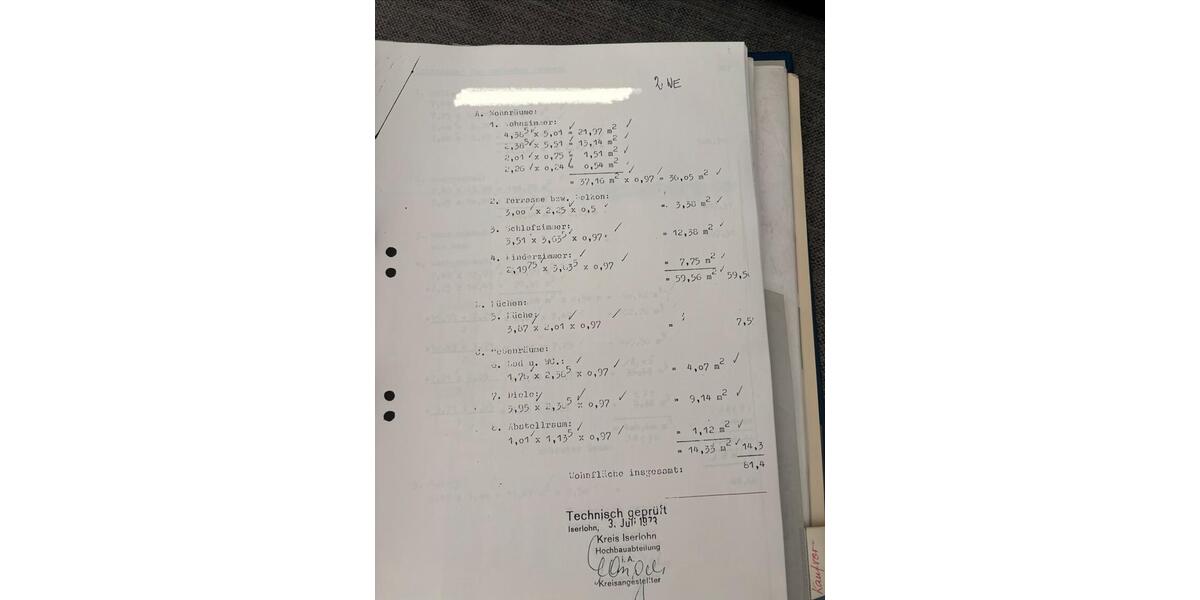 2 NE
A. Wohnräume:
1. Wohnzimmer:
4,38⁵ x 5,01 = 21,97 m²
2,38⁵ x 5,51 = 13,14 m²
2,01 x 0,75 = 1,51 m²
2,26 x 0,24 = 0,54 m²
= 37,16 m² x 0,97 = 36,05 m²
2. Terrasse bzw. Balkon:
3,00 x 2,25 x 0,5 = 3,38 m²
3. Schlafzimmer:
3,51 x 3,63⁵ x 0,97 = 12,38 m²
4. Kinderzimmer:
2,19⁷⁵ x 3,63⁵ x 0,97 = 7,75 m²
= 59,56 m² 59,5
Küchen:
5. Küche:
3,87 x 2,01 x 0,97 = 7,5
Nebenräume:
6. Bad u. WC.:
1,76 x 2,38⁵ x 0,97 = 4,07 m²
7. Diele:
3,95 x 2,38⁵ x 0,97 = 9,14 m²
8. Abstellraum:
1,01 x 1,13⁵ x 0,97 = 1,12 m²
= 14,33 m² 14,3
Wohnfläche insgesamt: 81,4
Technisch geprüft
Iserlohn, 3. Juli 1973
Kreis Iserlohn
Hochbauabteilung
i. A.
Kreisangestellter
Kaufver-